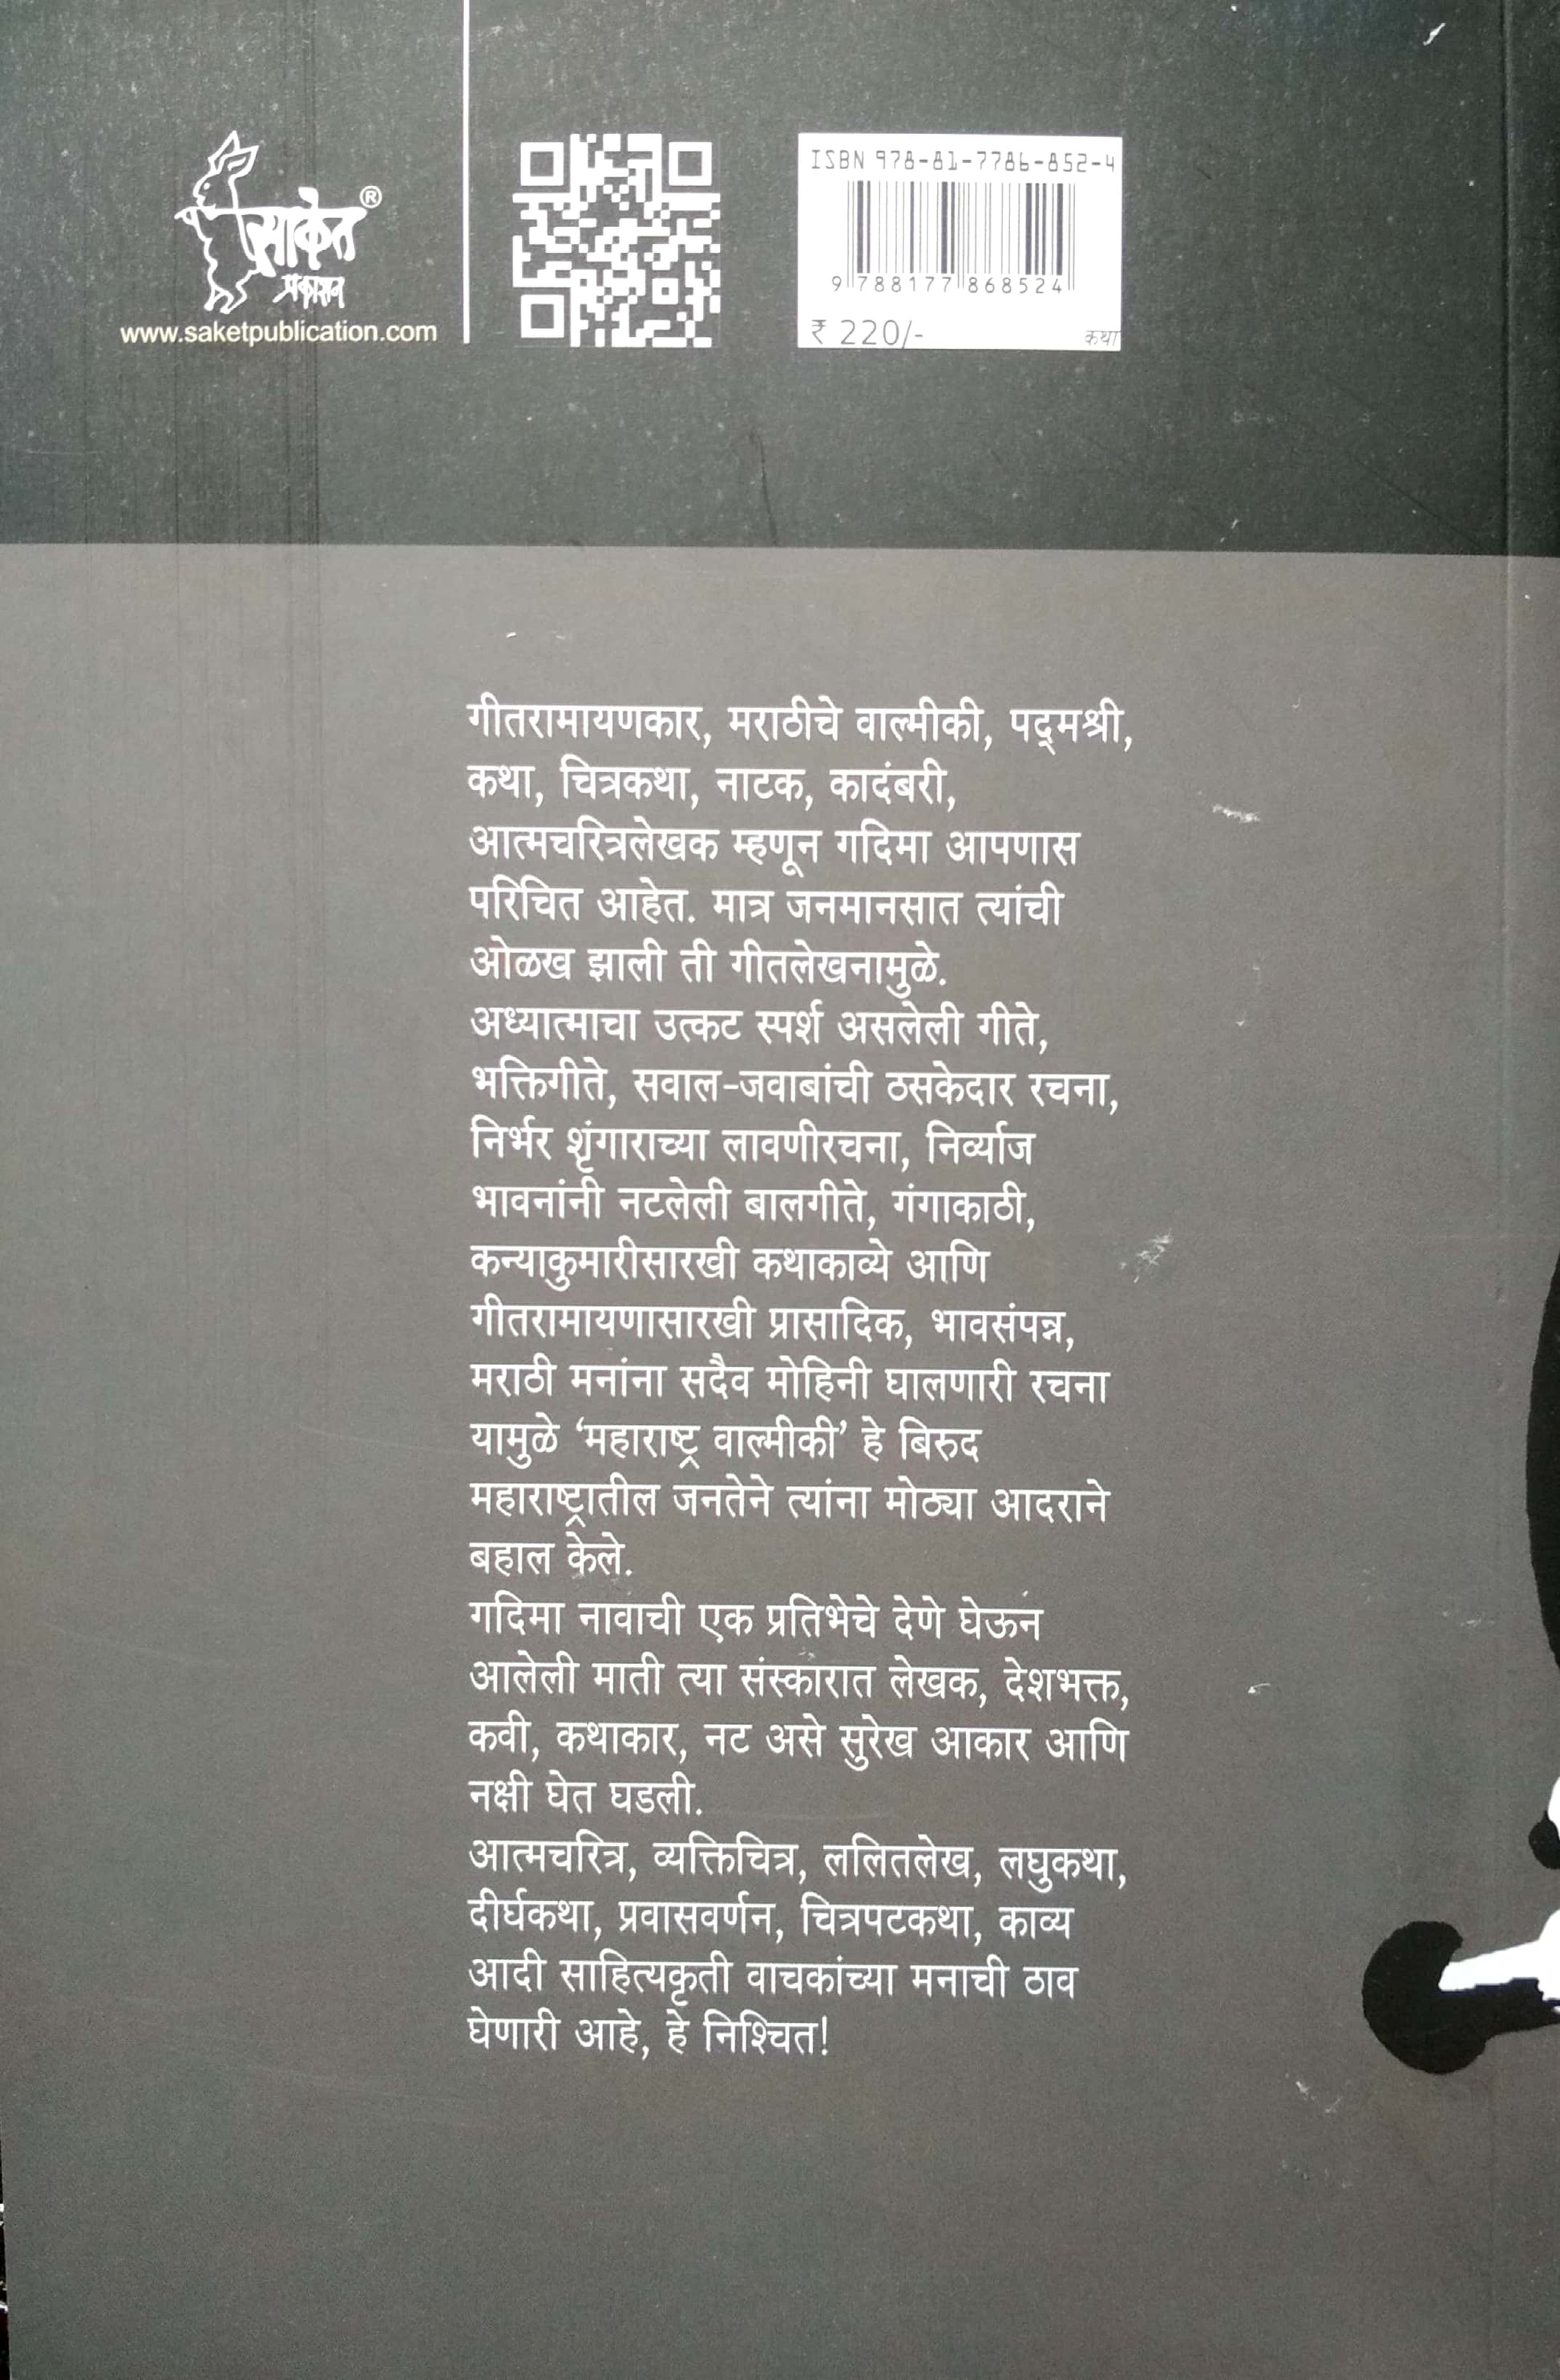 साकेत®
प्रकाशन
www.saketpublication.com
ISBN 978-81-7786-852-4
9 788177 868524
₹ 220/-
कथा
गीतरामायणकार, मराठीचे वाल्मीकी, पद्मश्री,
कथा, चित्रकथा, नाटक, कादंबरी,
आत्मचरित्रलेखक म्हणून गदिमा आपणास
परिचित आहेत. मात्र जनमानसात त्यांची
ओळख झाली ती गीतलेखनामुळे.
अध्यात्माचा उत्कट स्पर्श असलेली गीते,
भक्तिगीते, सवाल-जवाबांची ठसकेदार रचना,
निर्भर शृंगाराच्या लावणीरचना, निर्व्याज
भावनांनी नटलेली बालगीते, गंगाकाठी,
कन्याकुमारीसारखी कथाकाव्ये आणि
गीतरामायणासारखी प्रासादिक, भावसंपन्न,
मराठी मनांना सदैव मोहिनी घालणारी रचना
यामुळे ‘महाराष्ट्र वाल्मीकी’ हे बिरुद
महाराष्ट्रातील जनतेने त्यांना मोठ्या आदराने
बहाल केले.
गदिमा नावाची एक प्रतिभेचे देणे घेऊन
आलेली माती त्या संस्कारात लेखक, देशभक्त,
कवी, कथाकार, नट असे सुरेख आकार आणि
नक्षी घेत घडली.
आत्मचरित्र, व्यक्तिचित्र, ललितलेख, लघुकथा,
दीर्घकथा, प्रवासवर्णन, चित्रपटकथा, काव्य
आदी साहित्यकृती वाचकांच्या मनाची ठाव
घेणारी आहे, हे निश्चित!